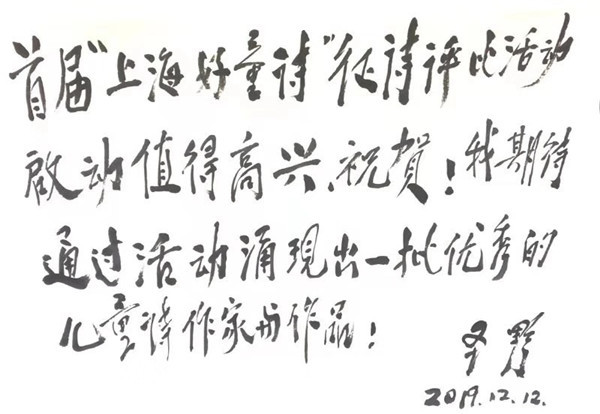 首届“上海好童诗”征诗评比活动
啟动值得高兴、祝賀！我期待
通过活动涌現出一批优秀的
儿童诗作家与作品！
圣野
2019.12.12.